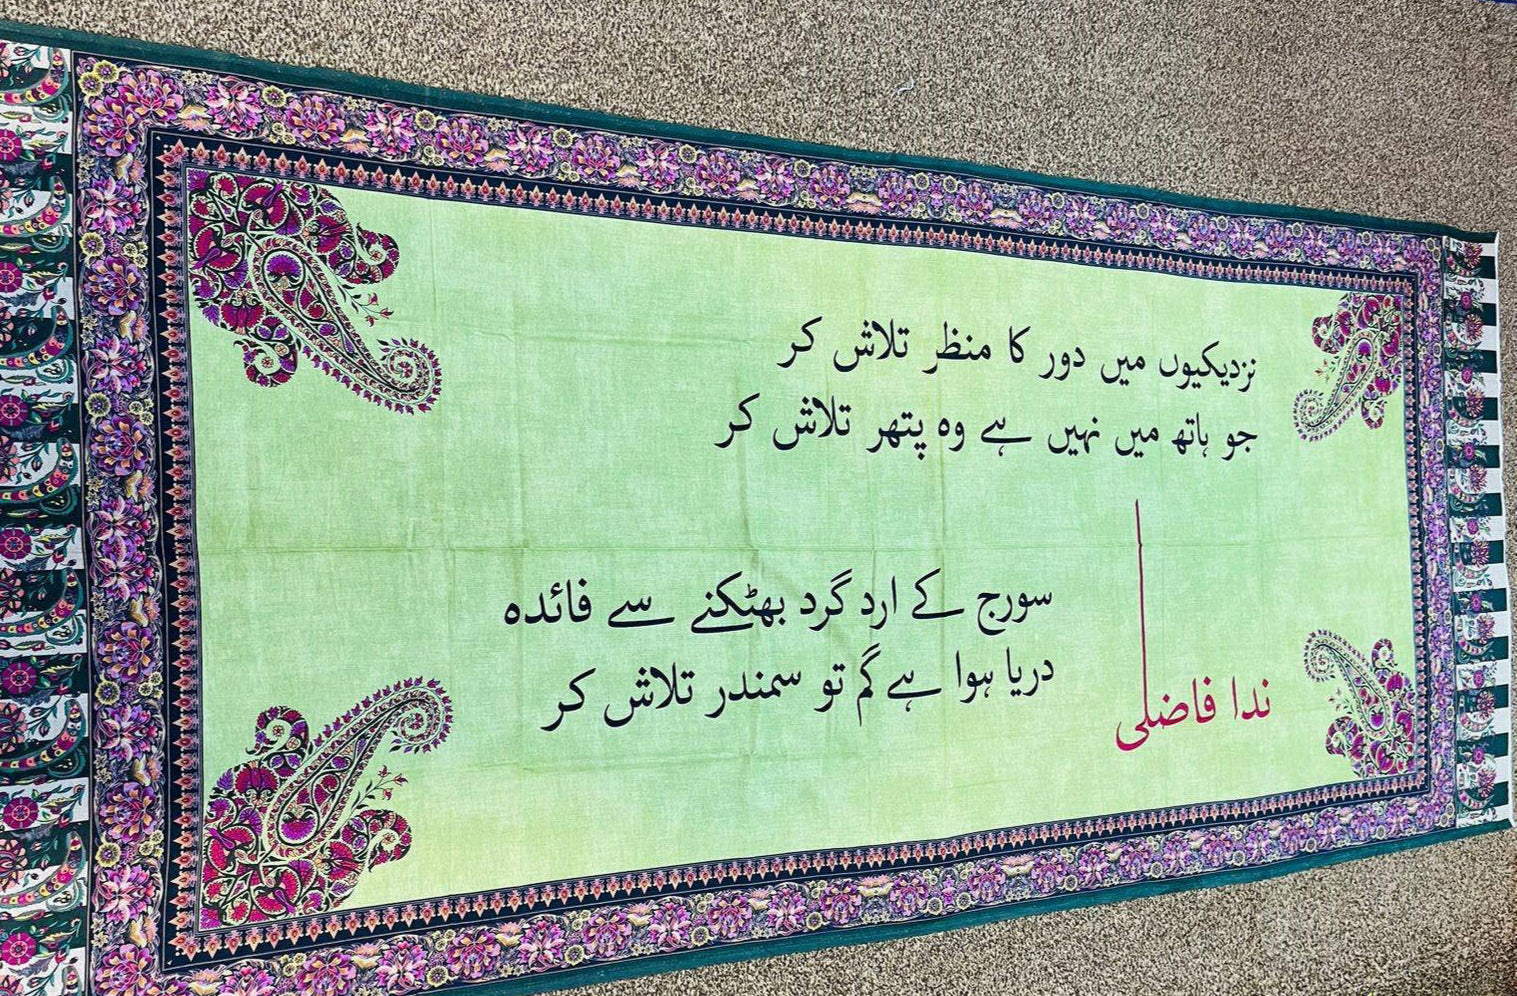 نزدیکیوں میں دور کا منظر تلاش کر
جو ہاتھ میں نہیں ہے وہ پتھر تلاش کر
سورج کے ارد گرد بھٹکنے سے فائدہ
دریا ہوا ہے گم تو سمندر تلاش کر
ندا فاضلی